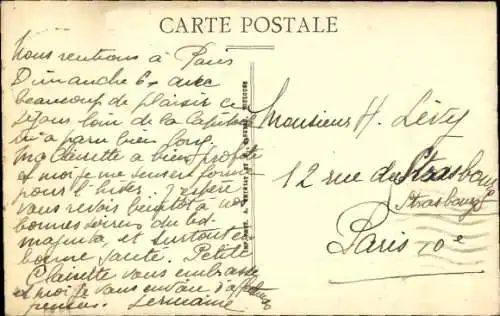 CARTE POSTALE
Nous rentrons à Paris
Dimanche 6 avec
beaucoup de plaisir ce
séjour loin de la Capitale
m'a paru bien long
Ma Clairette a bien profité
et moi je me sens en forme
pour l'hiver. J'espère
vous revoir bientôt à nos
bonnes soirées du bd
magenta, et surtout en
bonne santé. Petite
Clairette vous embrasse
et moi je vous envoie d'affectueuses
pensées. Germaine
Monsieur H. Lévy
12 rue du Strasbourg
(Strasbourg)
Paris 10e